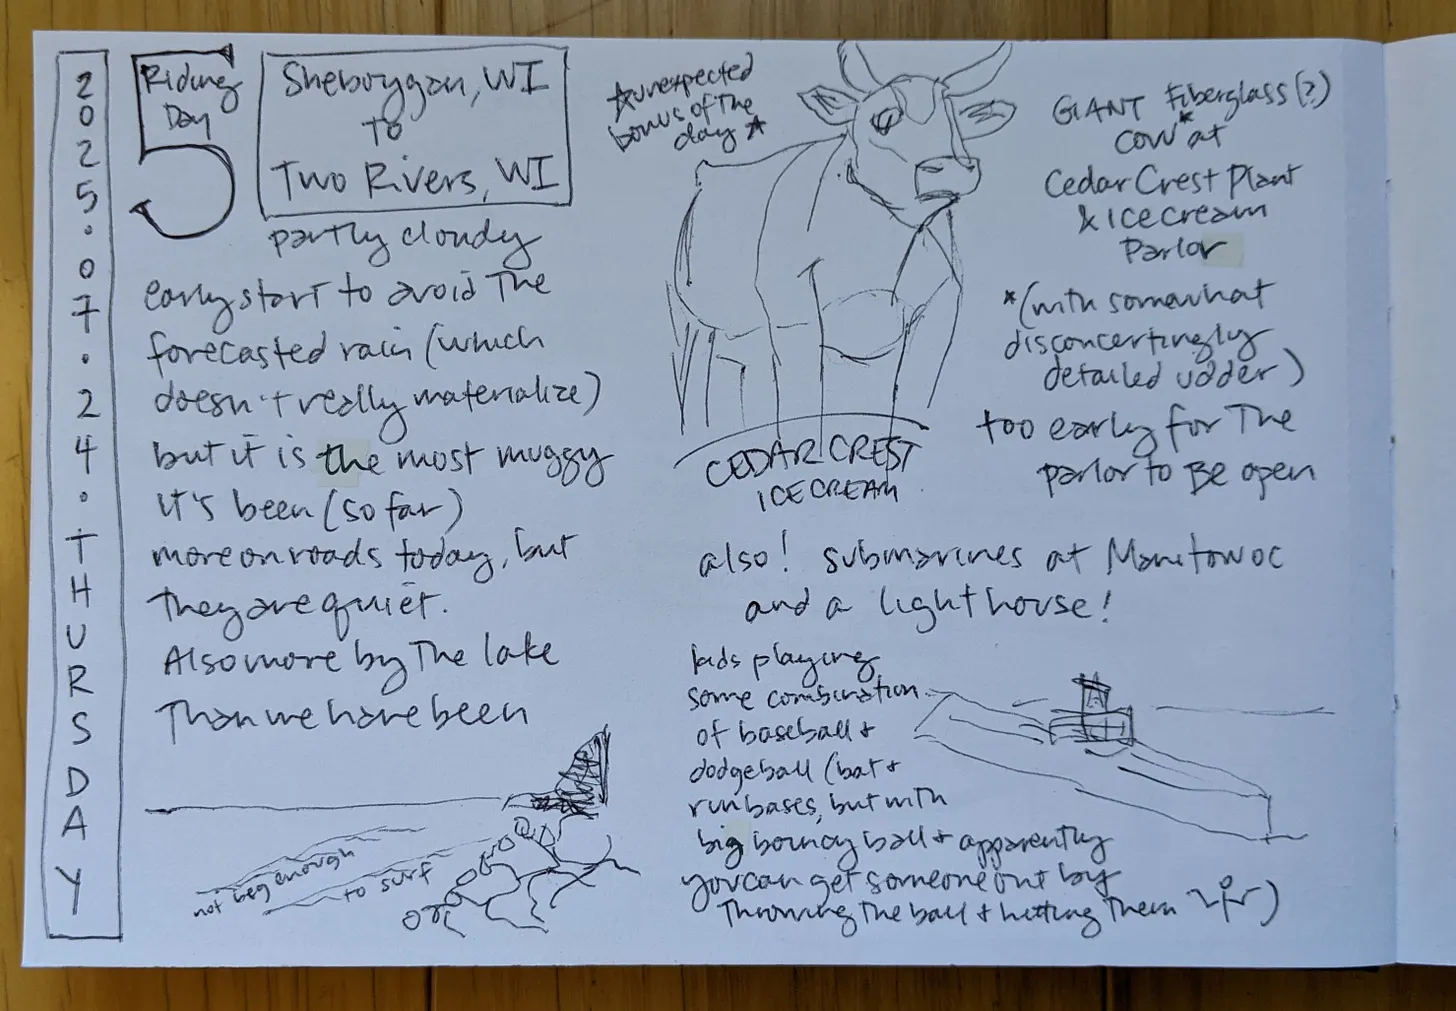 2025.07.24.THURSDAY
5
Riding
Day
Sheboygan, WI
TO
Two Rivers, WI
partly cloudy
early start to avoid the
forecasted rain (which
doesn't really materialize)
but it is the most muggy
it's been (so far)
more on roads today, but
they are quiet.
Also more by the lake
than we have been
not big enough
to surf
☆unexpected
bonus of the
day ☆
GIANT Fiberglass(?)
cow* at
Cedar Crest Plant
& ice cream
Parlor
*(with somewhat
disconcertingly
detailed udder)
too early for the
parlor to Be open
CEDAR CREST
ICE CREAM
also! submarines at Manitowoc
and a lighthouse!
kids playing
some combination
of baseball +
dodgeball (bat +
run bases, but with
big bouncy ball + apparently
you can get someone out by
throwing the ball + hitting them )